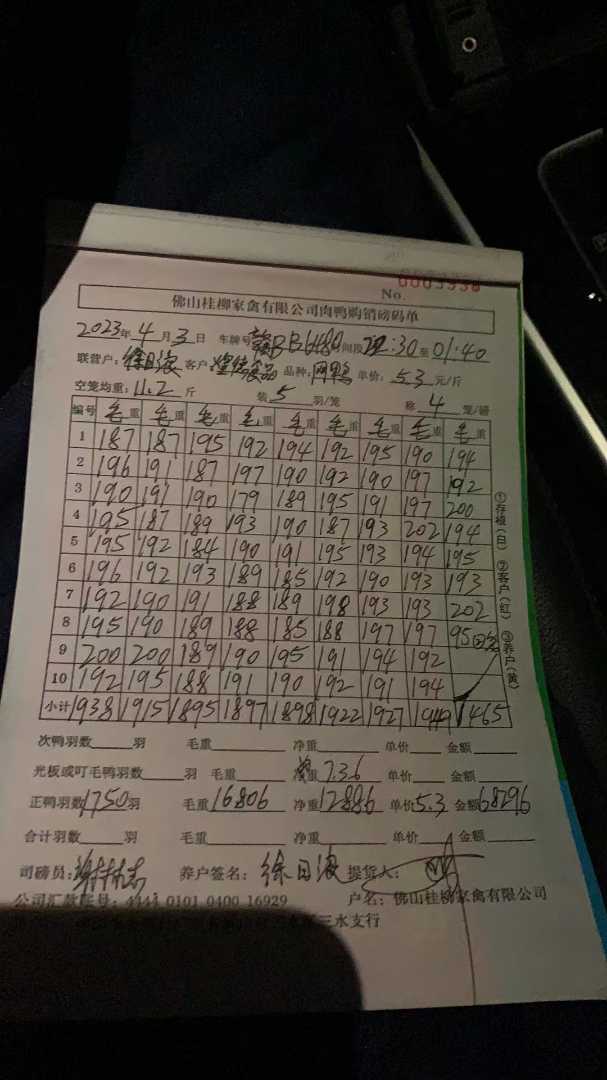 No. 0003938
佛山桂柳家禽有限公司肉鸭购销磅码单
2023年4月3日 车牌号 BB6489 时间段 22:30至01:40
联营户: 徐日 客户: 食品 品种: 鸭 单价: 5.3 元/斤
空笼均重: 11.2 斤 装 5 羽/笼 称 4 笼/磅
编号 毛重 毛重 毛重 毛重 毛重 毛重 毛重 毛重 毛重
1 187 187 195 192 194 192 195 190 194
2 196 191 187 197 190 192 190 197 192
3 190 191 190 179 189 195 191 197 200
4 195 187 189 193 190 187 193 202 194
5 195 192 184 190 191 195 193 194 195
6 196 192 193 189 185 192 190 193 193
7 192 190 191 188 189 198 193 193 202
8 195 190 189 188 185 188 197 197 95
9 200 200 189 190 195 191 194 192
10 192 195 188 191 190 192 191 194
小计 1938 1915 1895 1897 1898 1922 1927 1949 1465
①存根(白) ②客户(红) ③养户(黄)
次鸭羽数 羽 毛重 净重 单价 金额
光板或叮毛鸭羽数 羽 毛重 净重 7.36 单价 金额
正鸭羽数 1750 羽 毛重 16806 净重 12886 单价 5.3 金额 68296
合计羽数 羽 毛重 净重 单价 金额
司磅员: 养户签名: 徐日 提货人:
公司汇款账号: 4444 0101 0400 16929 户名: 佛山桂柳家禽有限公司
三水支行